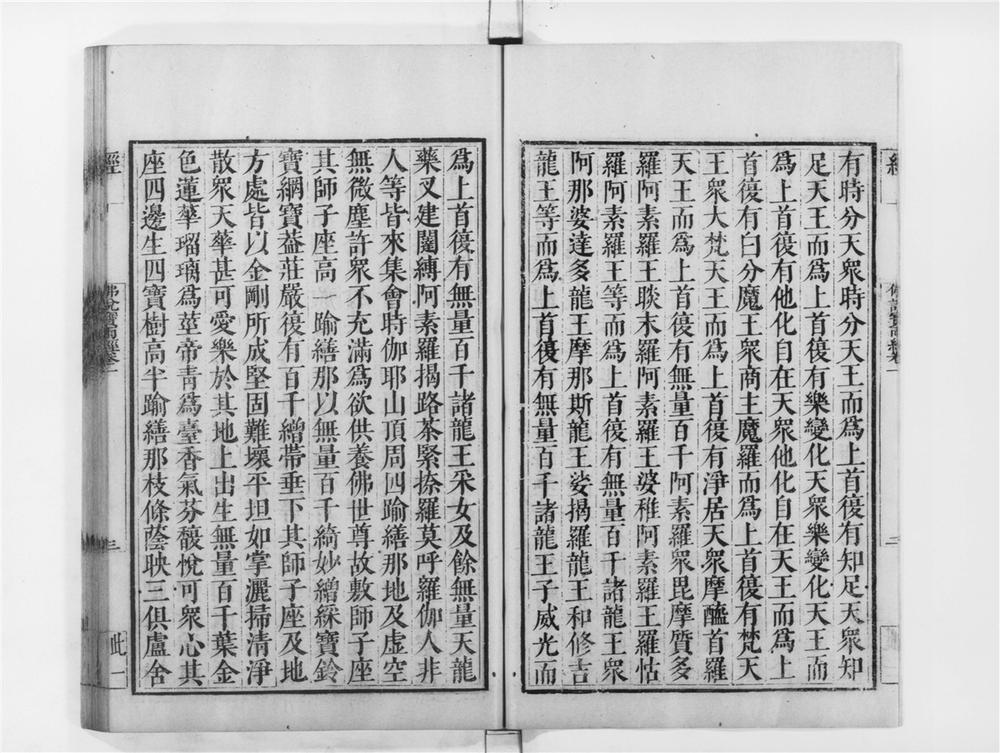 有時分天衆時分天王而爲上首復有知足天衆知
足天王而爲上首復有樂變化天衆樂變化天王而
爲上首復有他化自在天衆他化自在天王而爲上
首復有白分魔王衆商主魔羅而爲上首復有梵天
王衆大梵天王而爲上首復有淨居天衆摩醯首羅
天王而爲上首復有無量百千阿素羅衆毘摩質多
羅阿素羅王睒末羅阿素羅王婆稚阿素羅王羅怙
羅阿素羅王等而爲上首復有無量百千諸龍王衆
阿那婆達多龍王摩那斯龍王娑揭羅龍王和修吉
龍王等而爲上首復有無量百千諸龍王子威光而
爲上首復有無量百千諸龍王采女及餘無量天龍
藥叉建闥縛阿素羅揭路荼緊捺羅莫呼羅伽人非
人等皆來集會時伽耶山頂周四踰繕那地及虛空
無微塵許衆不充滿爲欲供養佛世尊故敷師子座
其師子座高一踰繕那以無量百千綺妙繒綵寶鈴
寶網寶葢莊嚴復有百千繒帶垂下其師子座及地
方處皆以金剛所成堅固難壞平坦如掌灑掃清淨
散衆天華甚可愛樂於其地上出生無量百千葉金
色蓮華瑠璃爲莖帝青爲臺香氣芬馥悅可衆心其
座四邊生四寶樹高半踰繕那枝條蔭映三俱盧舍
經